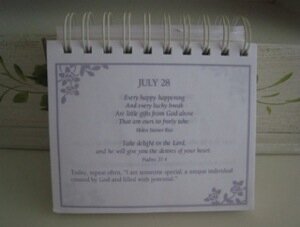 JULY 28
Every happy happening
And every lucky break
Are little gifts from God alone
That are ours to freely take
Helen Steiner Rice
Take delight in the Lord,
and he will give you the desires of your heart.
Psalms 37:4
Today, repeat often, "I am someone special, a unique individual
created by God and filled with potential."